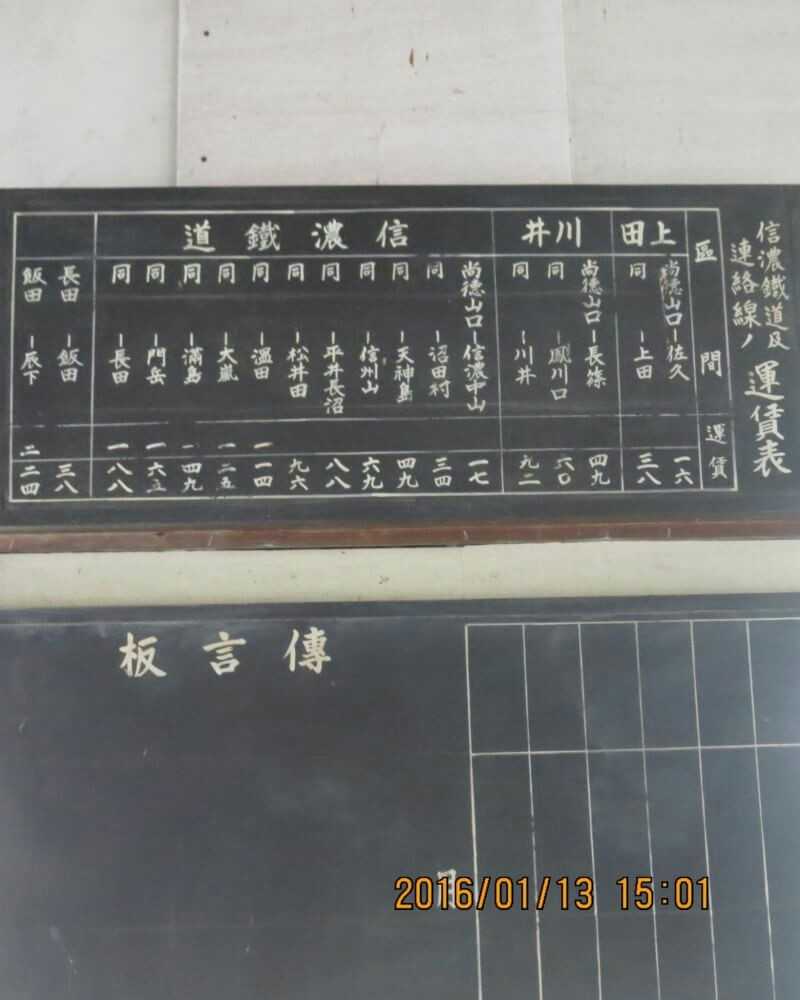 信濃鐵道及
連絡線ノ
運賃表
區間 運賃
上田
尚德山口ー佐久 一六
同ー上田 三八
川井
尚德山口ー長篠 四九
同ー鳳川口 六〇
同ー川井 九二
信濃鐵道
尚德山口ー信濃中山 一七
同ー沼田村 三四
同ー天神島 四九
同ー信州山 六九
同ー平井長沼 八八
同ー松井田 九六
同ー溫田 一一四
同ー大嵐 一二五
同ー滿島 一四九
同ー門岳 一六五
同ー長田 一八八
長田ー飯田 三八
飯田ー辰下 二二四
傳言板
月
2016/01/13 15:01